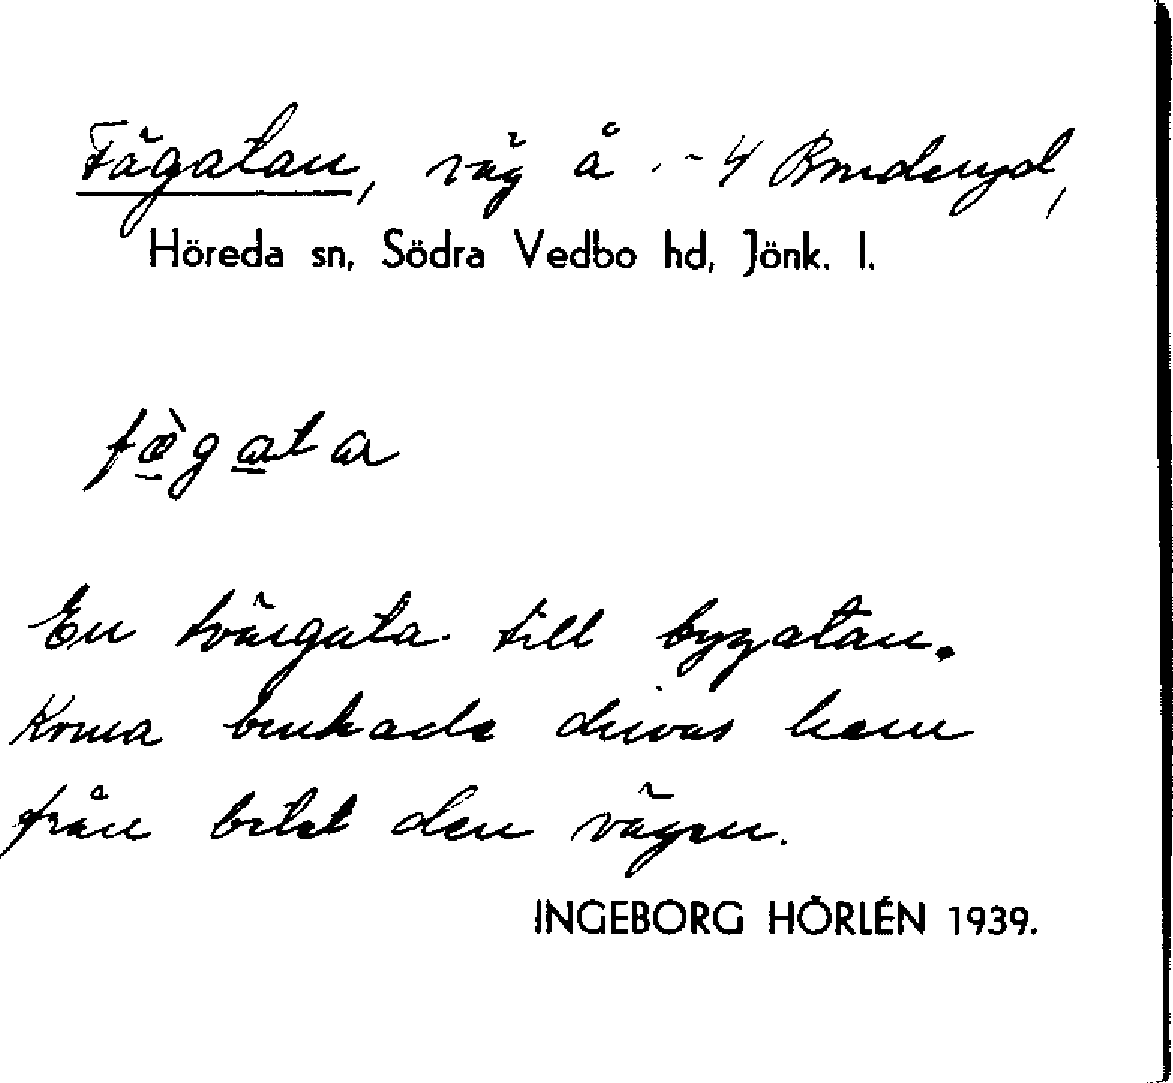 Fägatan, väg å .-4 Bruderyd,
Höreda sn, Södra Vedbo hd, Jönk. l.
fæ̀gata
En tvärgata till bygatan.
Korna brukade drivas hem
från betet den vägen.
INGEBORG HÖRLÉN 1939.